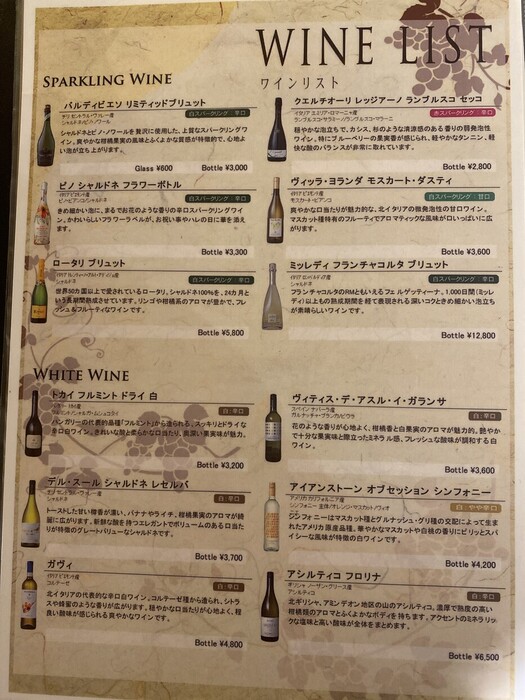 WINE LIST
ワインリスト
SPARKLING WINE
バルディビエソ リミティッドブリュット
チリ セントラル・ヴァレー産
シャルドネ/ピノ・ノワール
白スパークリング：辛口
シャルドネとピノ・ノワールを贅沢に使用した、上質なスパークリングワイン。爽やかな柑橘果実の風味とふくよかな質感が特徴的で、心地よい泡が立ち上がります。
Glass ¥600 Bottle ¥3,000
ピノ シャルドネ フラワーボトル
ピノ・ビアンコ/シャルドネ
白スパークリング：辛口
きめ細かい泡に、まるでお花のような香りの辛口スパークリングワイン。かわいらしいフラワーラベルが、お祝い事やハレの日に華を添えます。
Bottle ¥3,300
ロータリ ブリュット
シャルドネ
白スパークリング：辛口
世界50カ国以上で愛されているロータリ。シャルドネ100%を、24カ月という長期間熟成させています。リンゴや柑橘系のアロマが豊かで、フレッシュ＆フルーティなワインです。
Bottle ¥5,800
クエルチオーリ レッジアーノ ランブルスコ セッコ
イタリア エミリア・ロマーニャ産
ランブルスコ・サラミーノ/ランブルスコ・マラーニ
赤スパークリング：辛口
穏やかな泡立ちで、カシス、杉のような清涼感のある香りの微発泡性ワイン。特にブルーベリーの果実香が感じられ、軽やかなタンニン、軽快な酸のバランスが非常に取れています。
Bottle ¥2,800
ヴィッラ・ヨランダ モスカート・ダスティ
イタリア ピエモンテ産
モスカート・ビアンコ
白スパークリング：甘口
爽やかな口当たりが魅力的な、北イタリアの微発泡性の甘口ワイン。マスカット種特有のフルーティでアロマティックな風味が口いっぱいに広がります。
Bottle ¥3,600
ミッレディ フランチャコルタ ブリュット
シャルドネ
白スパークリング：辛口
フランチャコルタのRMともいえるフェルゲッティーナ。1,000日間（ミッレディ）以上もの熟成期間を経て表現される深いコクときめ細かい泡立ちが素晴らしいワインです。
Bottle ¥12,800
WHITE WINE
トカイ フルミント ドライ 白
白：辛口
ハンガリーの代表的品種「フルミント」から造られる、スッキリとドライな辛口白ワイン。きれいな酸と柔らかな口当たり、奥深い果実味が魅力。
Bottle ¥3,200
デル・スール シャルドネ レセルバ
チリ セントラル・ヴァレー産
シャルドネ
白：辛口
トーストした甘い樽香が漂い、バナナやライチ、柑橘果実のアロマが綺麗に広がります。新鮮な酸を持つエレガントでボリュームのある口当たりが特徴のグレートバリューなシャルドネです。
Bottle ¥3,700
ガヴィ
イタリア ピエモンテ産
コルテーゼ
白：辛口
北イタリアの代表的な辛口白ワイン。コルテーゼ種から造られ、シトラスや蜂蜜のような香りが広がります。穏やかな口当たりが心地よく、程良い酸味が感じられる爽やかなワインです。
Bottle ¥4,800
ヴィティス・デ・アスル・イ・ガランサ
スペイン ナバーラ産
ガルナッチャ・ブランカ/ビウラ
白：辛口
花のような香りが心地よく、柑橘香と白果実のアロマが魅力的。艶やかで十分な果実味と際立ったミネラル感、フレッシュな酸味が調和する白ワイン。
Bottle ¥3,600
アイアンストーン オブセッション シンフォニー
アメリカ カリフォルニア産
白：やや辛口
シンフォニーはマスカット種とグルナッシュ・グリ種の交配によって生まれたアメリカ原産品種。華やかなマスカットや白桃の香りにピリッとスパイシーな風味が特徴の白ワインです。
Bottle ¥4,200
アシルティコ フロリナ
ギリシャ ノーザン・グリース産
アシルティコ
白：辛口
北ギリシャ、アミンデオン地区の山のアシルティコ。濃厚で熟度の高い柑橘類のアロマとふくよかなボディを持ちます。アクセントのミネラリックな塩味と高い酸味が全体をまとめます。
Bottle ¥6,500